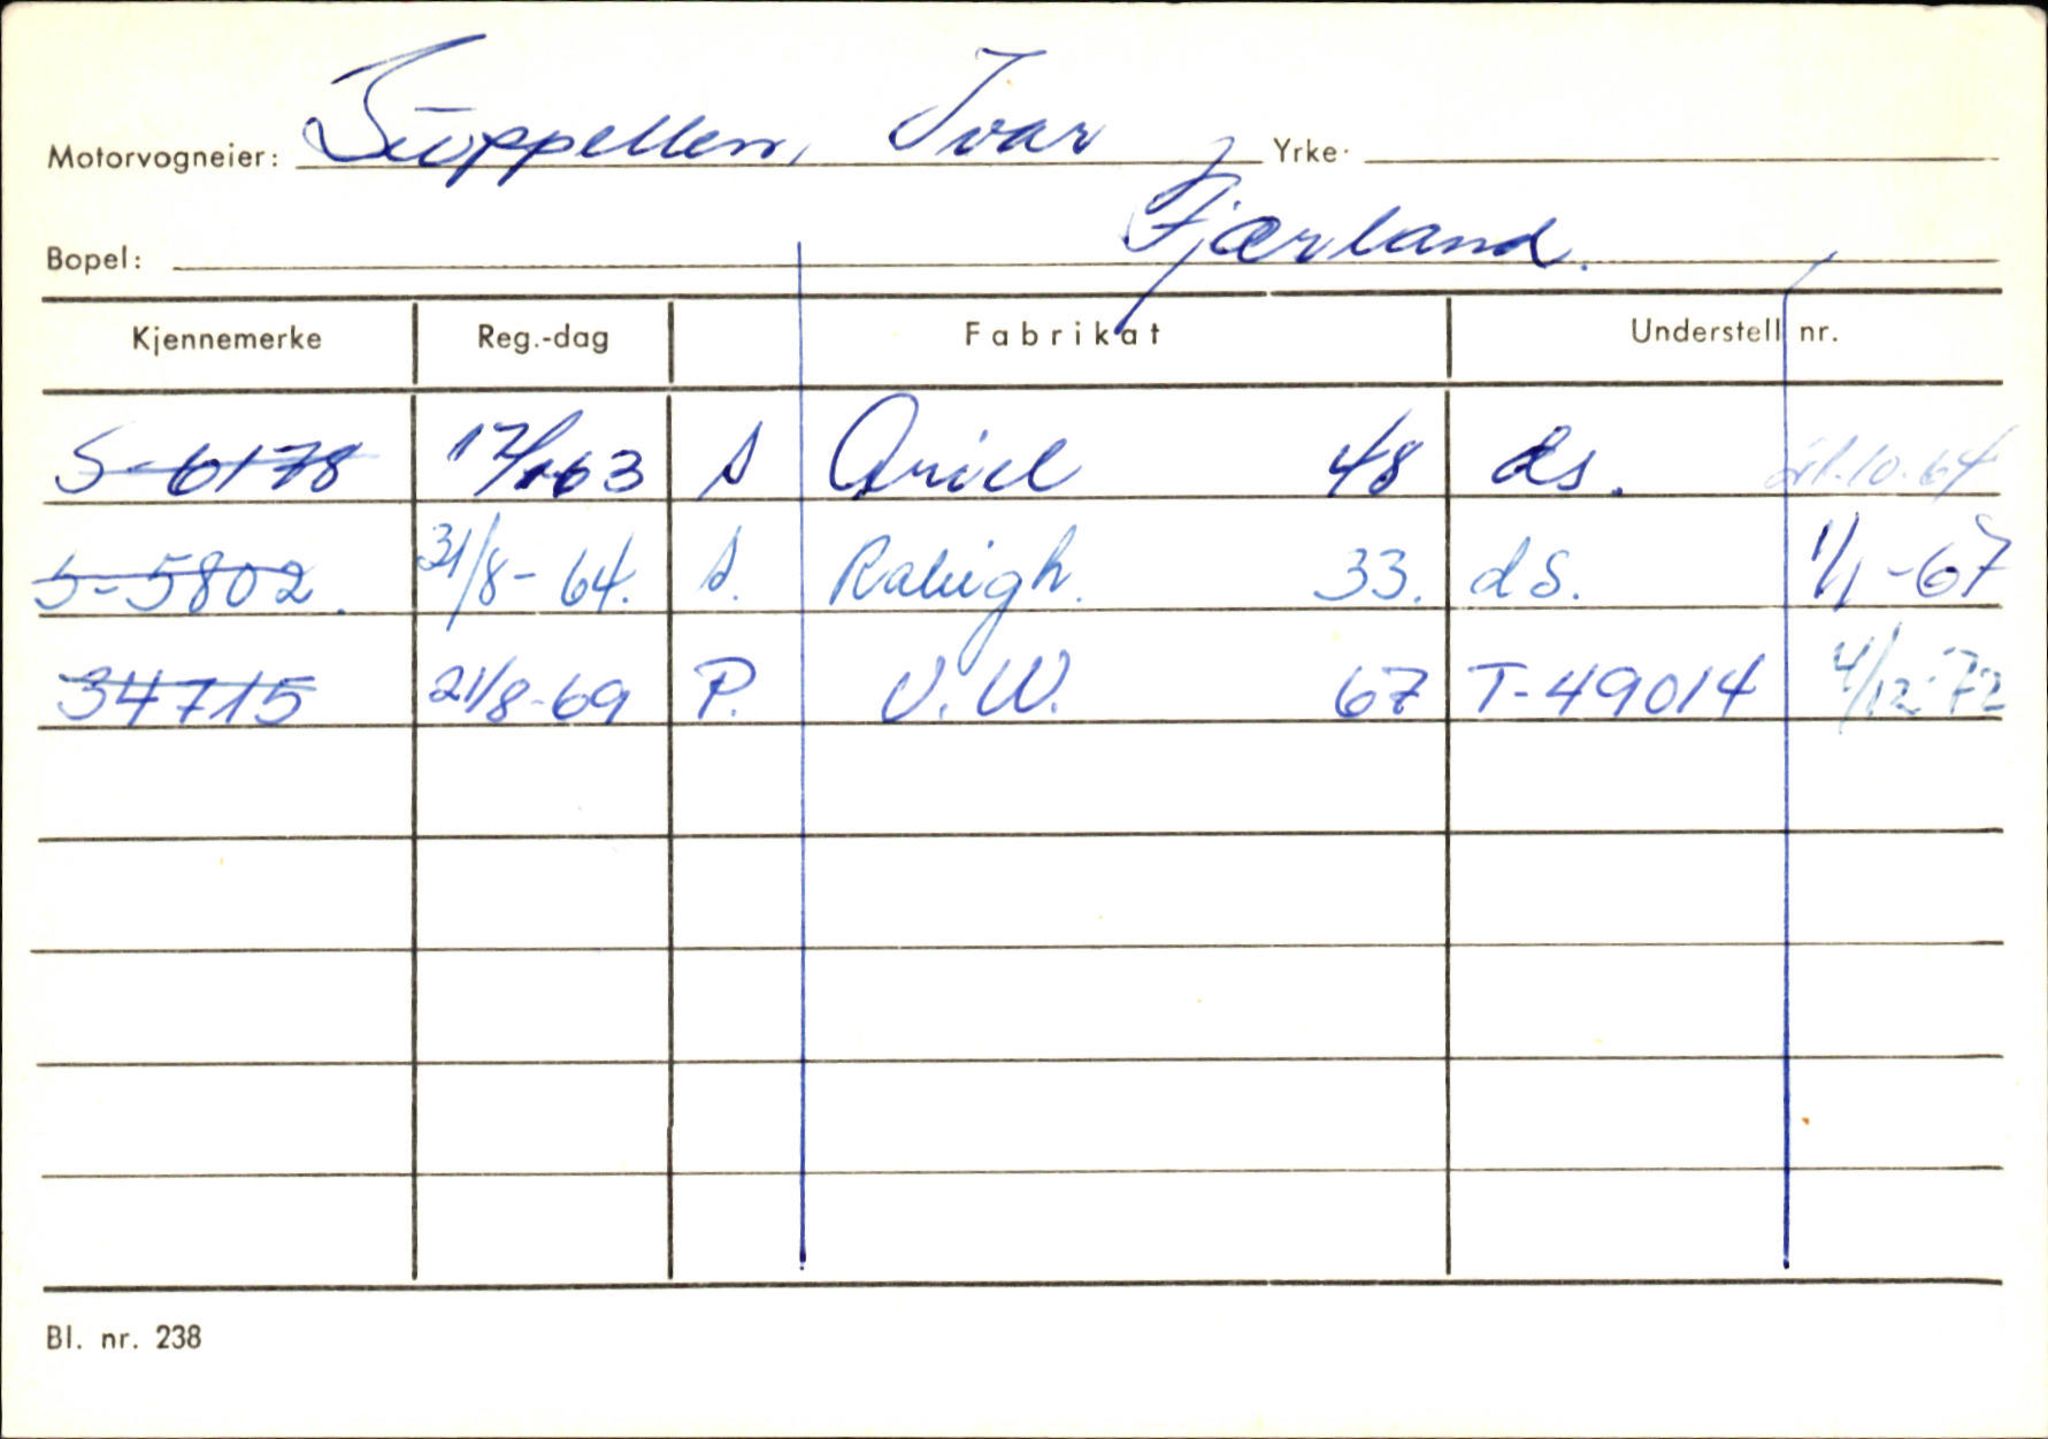 Motorvogneier: Suppellen, Ivar Yrke:
Bopel: Fjærland.
Kjennemerke Reg.-dag Fabrikat Understell nr.
S-6178 63 S Ariel 48 ds. 10-64
S-5802. 31/8-64. S. Raleigh. 33. ds. 1/1-67
34715 21/8-69 P. V.W. 67 T-49014 4/12-72
Bl. nr. 238